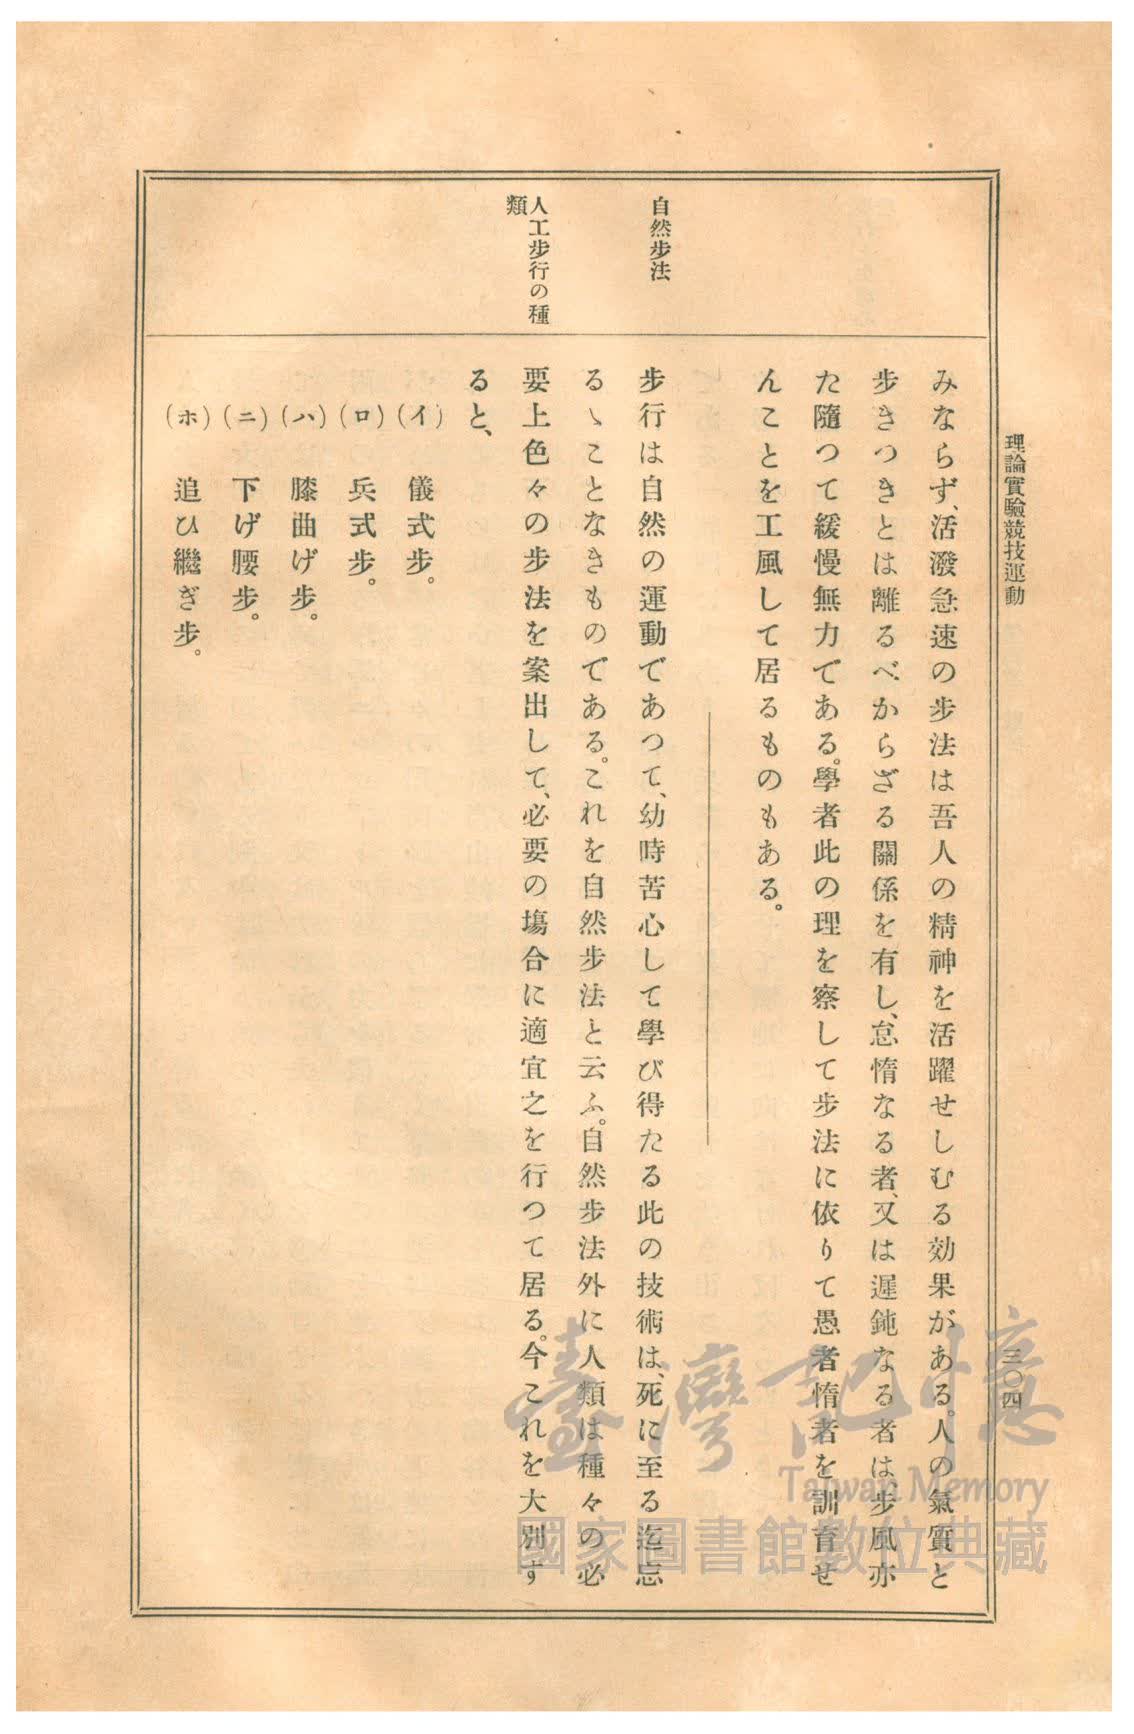 理論實驗競技運動
三〇四
みならず、活潑急速の步法は吾人の精神を活躍せしむる効果がある。人の氣質と
步きつきとは離るべからざる關係を有し、怠惰なる者、又は遲鈍なる者は步風亦
た隨つて緩慢無力である。學者此の理を察して步法に依りて愚者惰者を訓育せ
んことを工風して居るものもある。
自然步法
步行は自然の運動であつて、幼時苦心して學び得たる此の技術は、死に至る迄忘
るゝことなきものである。これを自然步法と云ふ。自然步法外に人類は種々の必
人工步行の種
類
要上色々の步法を案出して、必要の塲合に適宜之を行つて居る。今これを大別す
ると、
(イ) 儀式步。
(ロ) 兵式步。
(ハ) 膝曲げ步。
(ニ) 下げ腰步。
(ホ) 追ひ繼ぎ步。
臺灣記憶
Taiwan Memory
國家圖書館數位典藏